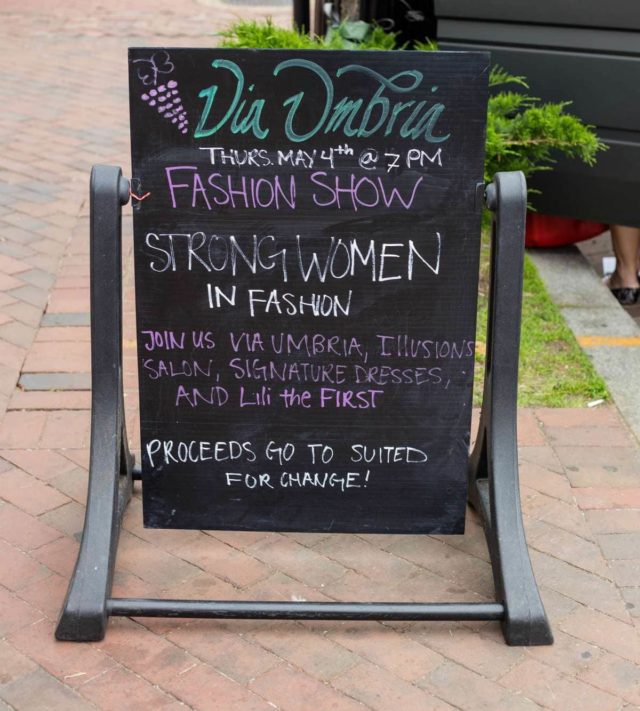 Via Umbria
THURS. MAY 4th @ 7 PM
FASHION SHOW
STRONG WOMEN
IN FASHION
JOIN US VIA UMBRIA, IllUSIONS
SALON, SIGNATURE DRESSES,
AND Lili the FIRST
PROCEEDS GO TO SUITED
FOR CHANGE!